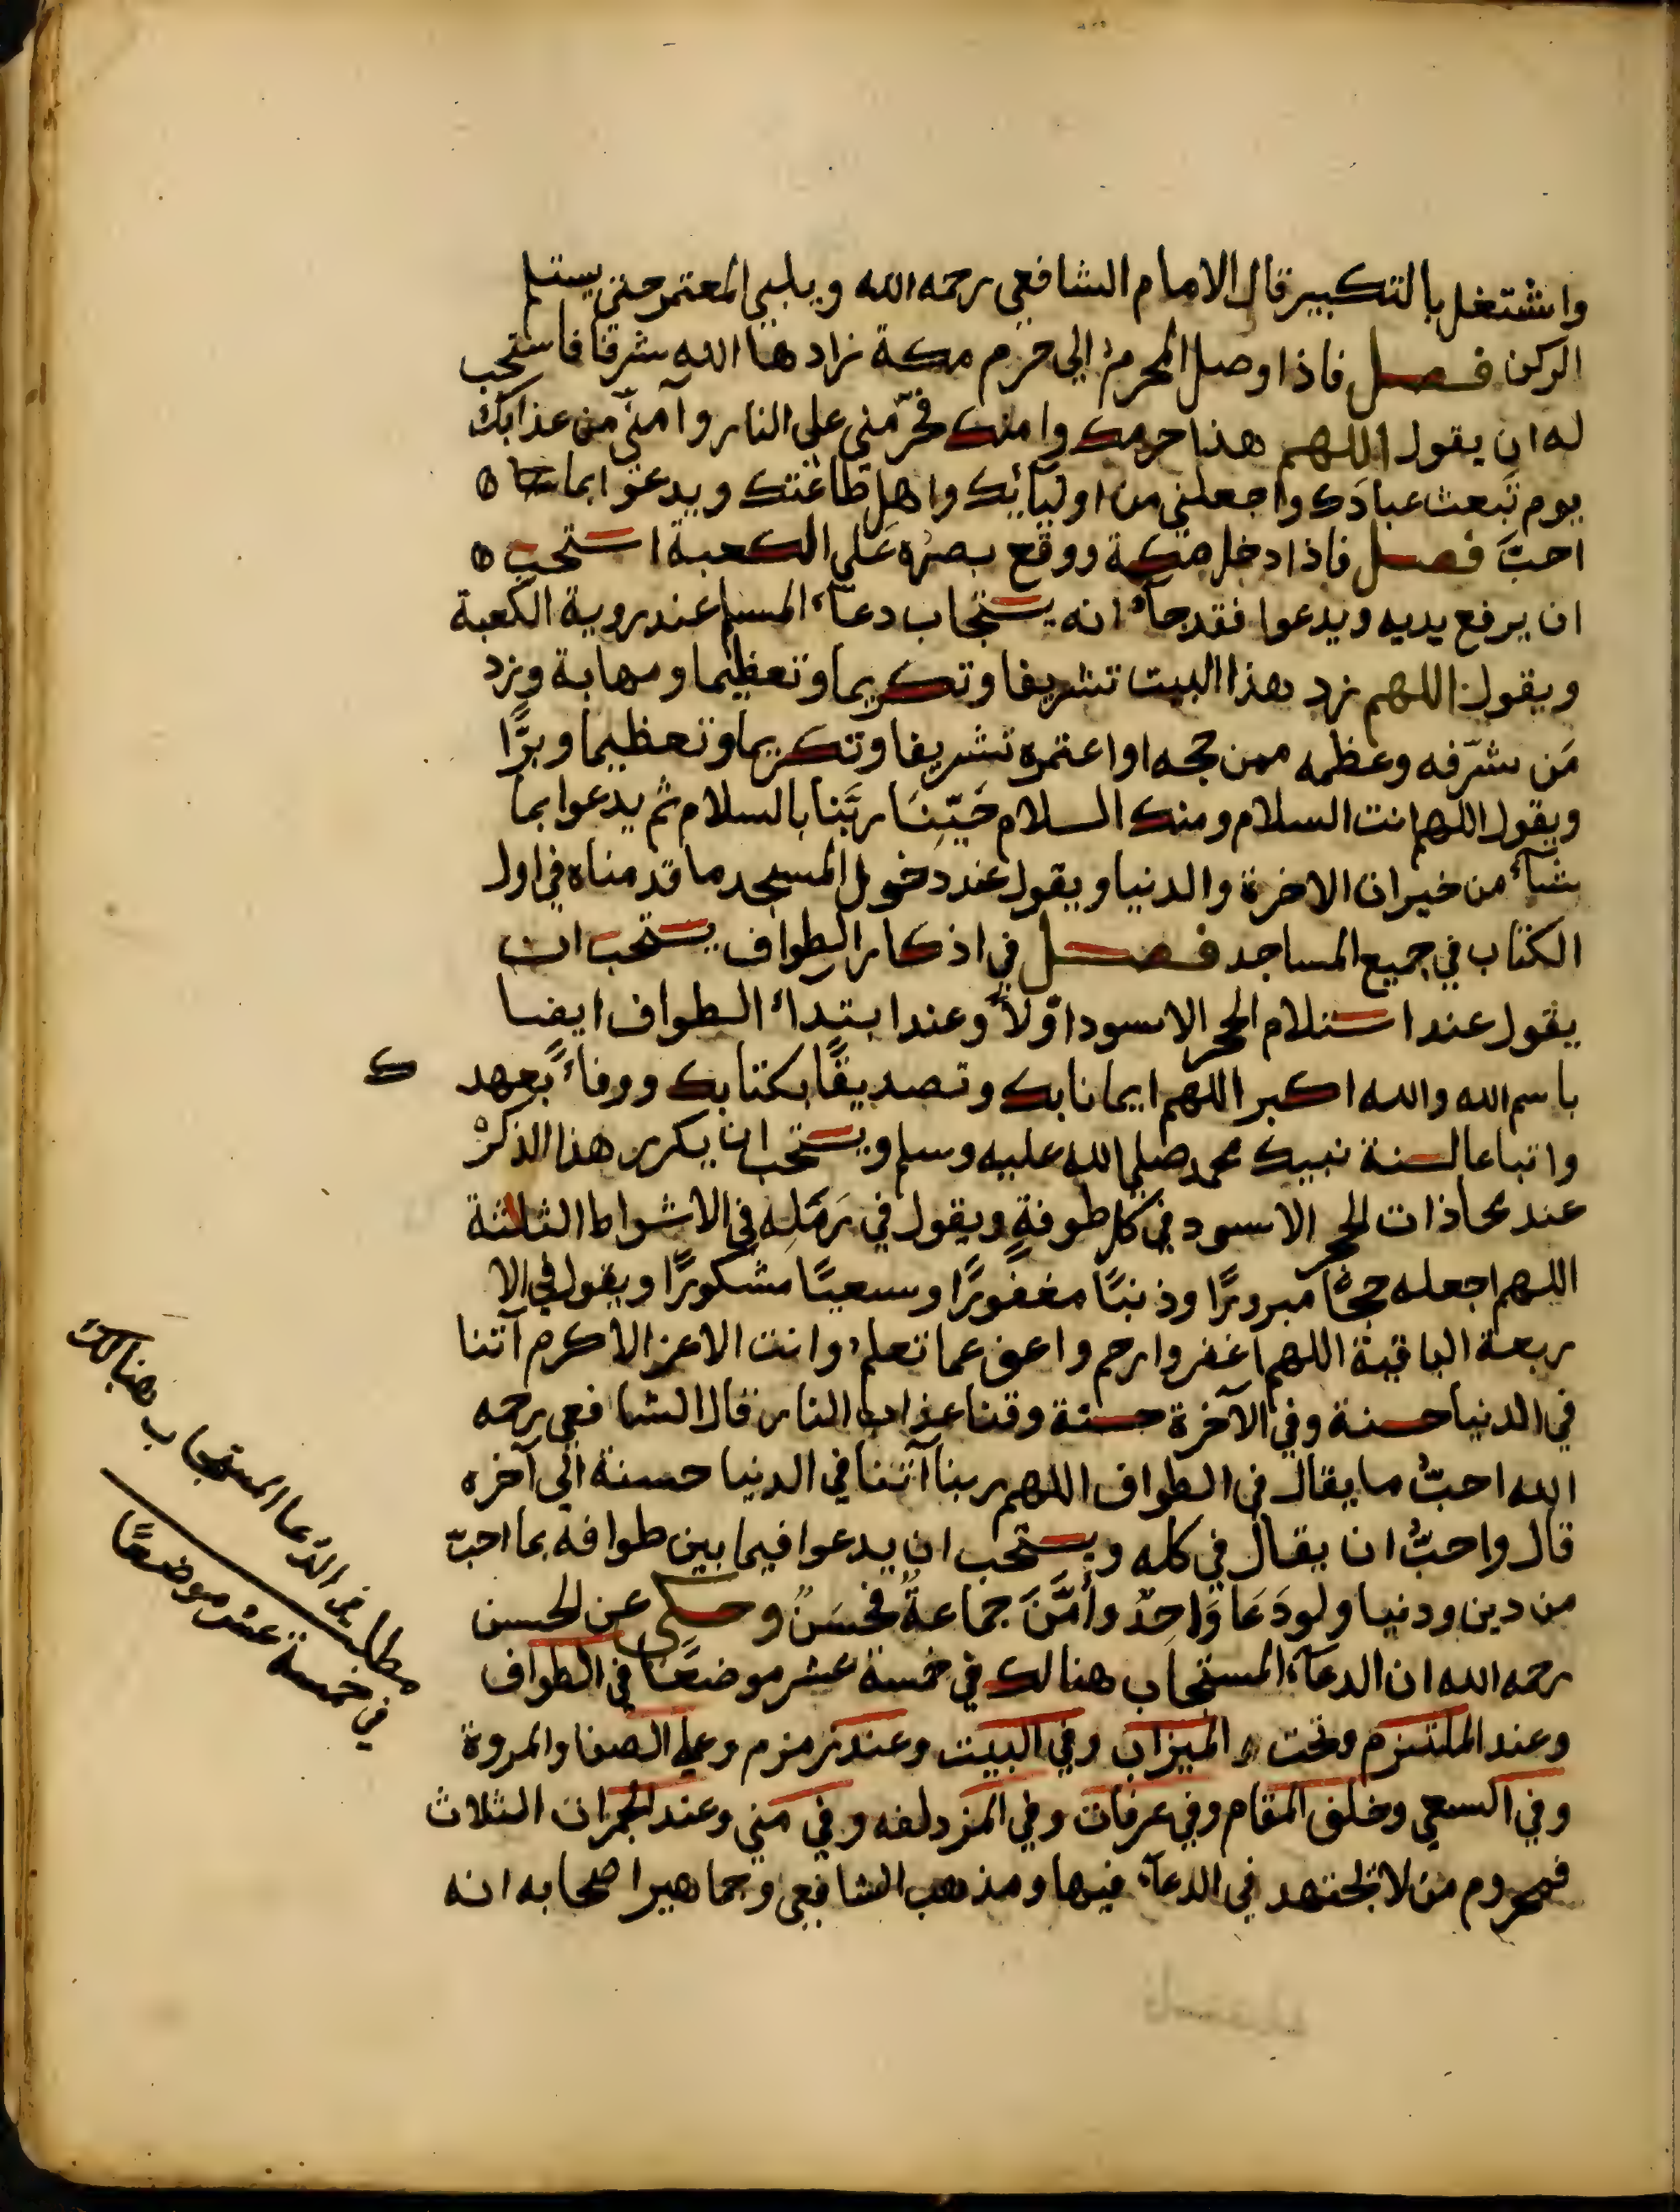 واشتغل بالتكبير قال الامام الشافعي رحمه الله ويلبي المعتمر حتى يستلم
الركن فصل فاذا وصل المحرم الي حرم مكة زادها الله شرفا فاستحب
له ان يقول اللهم هذا حرمك وامنك فحرّمني على النار وآمنّي من عذابك
يوم تبعث عبادك واجعلني من اوليائك واهل طاعتك ويدعوا بما
احبّ فصل فاذا دخل مكة ووقع بصره على الكعبة استحب
ان يرفع يديه ويدعوا فقد جآء انه يستجاب دعآء المسلم عند روية الكعبة
ويقول اللهم زد هذا البيت تشريفا وتكريما وتعظيما ومهابة وزد
مَن شرّفه وعظمه ممن حجه او اعتمره تشريفا وتكريما وتعظيما وبرًّا
ويقول اللهم انت السلام ومنك السلام حَيّنَا ربَّنا بالسلام ثم يدعوا بما
شآء من خيرات الاخرة والدنيا ويقول عند دخول المسجد ما قدمناه في اول
الكتاب في جميع المساجد فصل في اذكار الطواف يستحب ان
يقول عند استلام الحجر الاسود اوّلاً وعند ابتداء الطواف ايضا
باسم الله والله اكبر اللهم ايمانا بك وتصديقًا بكتابك ووفاءً بعهدك
واتباعا لسنة نبيك محمد صلى الله عليه وسلم ويستحب ان يكرر هذا الذكر
عند محاذات الحجر الاسود في كل طوفةٍ ويقول في رَمَلِه في الاشواط الثلثة
اللهم اجعله حجًّا مبرورًا وذنبًا مغفورًا وسعيًا مشكورًا ويقول في الا
ربعة الباقية اللهم اغفر وارحم واعف عما تعلم وانت الاعز الاكرم آتنا
في الدنيا حسنة وفي الآخرة حسنة وقنا عذاب النار قال الشافعي رحمه
الله احبّ ما يقال في الطواف اللهم ربنا آتنا في الدنيا حسنة الي آخره
قال واحبّ ان يقال في كله ويستحب ان يدعوا فيما بين طوافه بما احبّ
من دين ودنيا ولو دَعَا وَاحِدٌ وأَمَّنَ جماعةٌ فحَسَنٌ وحكي عن الحسن
رحمه الله ان الدعآء المستجاب هنالك في خمسة عشر موضعًا في الطواف
وعند الملتزم وتحت الميزاب وفي البيت وعند زمزم وعلي الصفا والمروة
وفي السعي وخلف المقام وفي عرفات وفي المزدلفه وفي مني وعند الجمرات الثلاث
فمحروم من لا يجتهد في الدعآء فيها ومذهب الشافعي وجماهير اصحابه انه
مطلب في الدّعا المستجاب هنالك
في خمسة عشر موضعًا